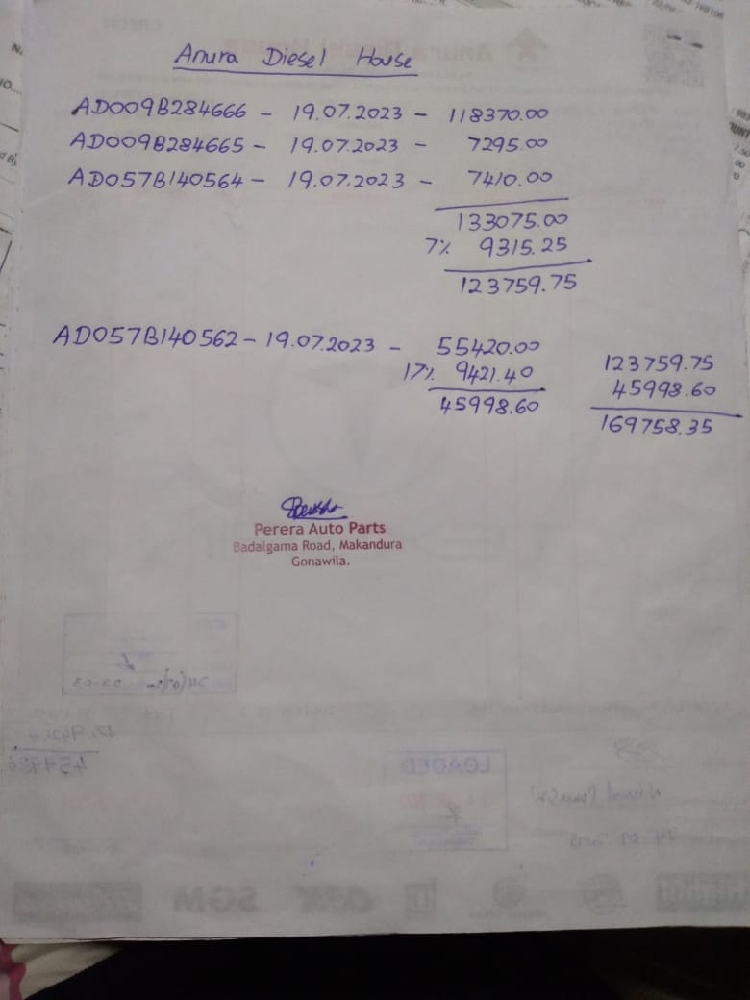 Anura Diesel House
AD009B284666 - 19.07.2023 - 118370.00
AD009B284665 - 19.07.2023 - 7295.00
AD057B140564 - 19.07.2023 - 7410.00
133075.00
7% 9315.25
123759.75
AD057B140562 - 19.07.2023 - 55420.00
17% 9421.40
45998.60
123759.75
45998.60
169758.35
Perera Auto Parts
Badalgama Road, Makandura
Gonawila.
LOADED
SGM